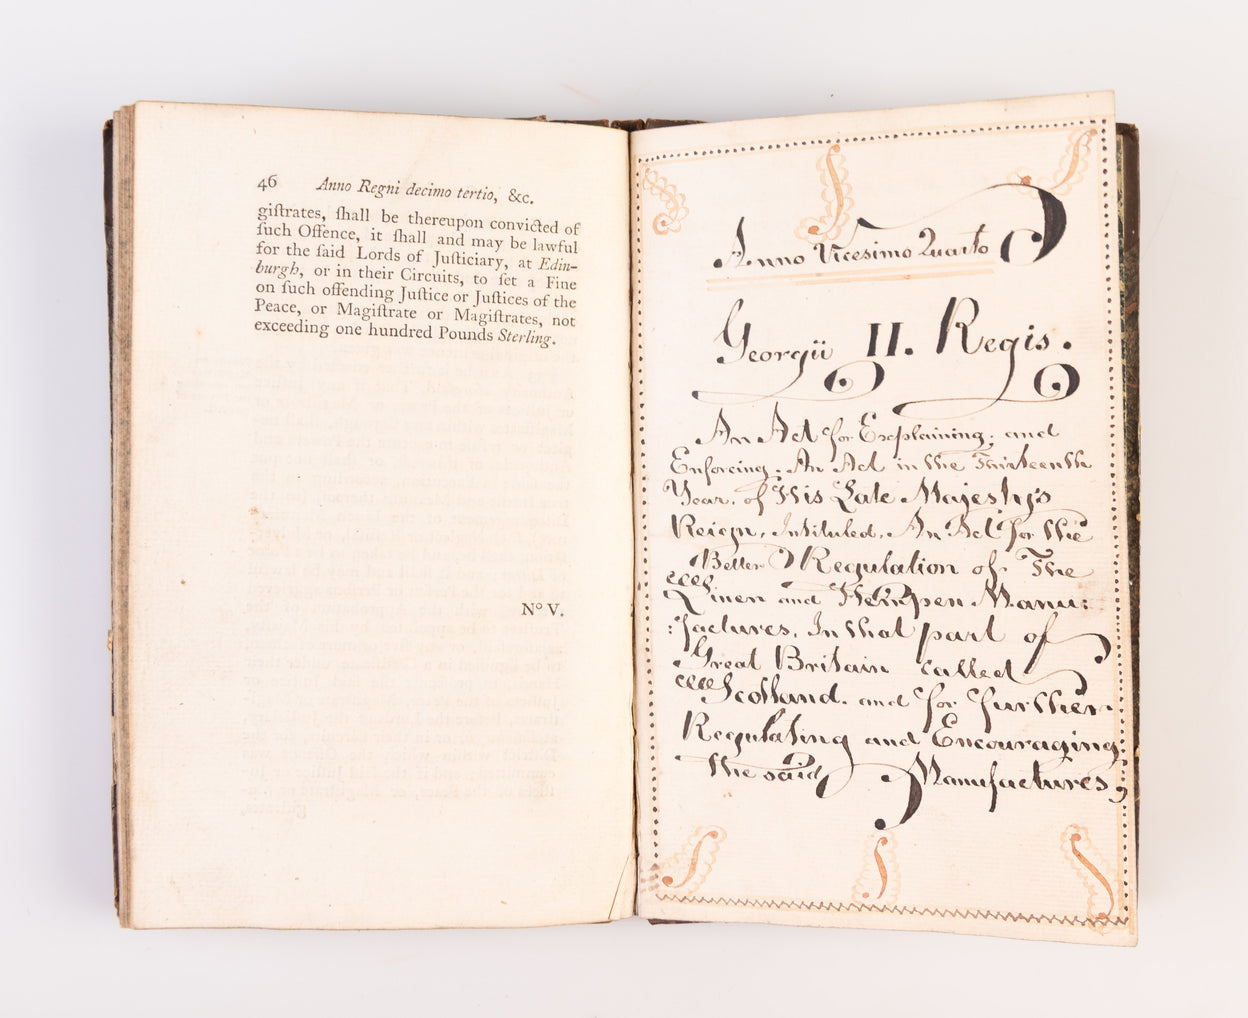 46 Anno Regni decimo tertio, &c.
giſtrates, ſhall be thereupon convicted of
ſuch Offence, it ſhall and may be lawful
for the ſaid Lords of Juſticiary, at Edin-
burgh, or in their Circuits, to ſet a Fine
on ſuch offending Juſtice or Juſtices of the
Peace, or Magiſtrate or Magiſtrates, not
exceeding one hundred Pounds Sterling.
Nº V.
Anno Vicesimo Quarto
Georgii II. Regis.
An Act for Explaining; and
Enforcing. An Act in the Thirteenth
Year. of His Late Majesty's
Reign, Intituled, An Act for the
Better Regulation of The
Linen and Hempen Manu:
:factures, In that part of
Great Britain called
Scotland. and for further
Regulating and Encouraging
the said Manufactures,